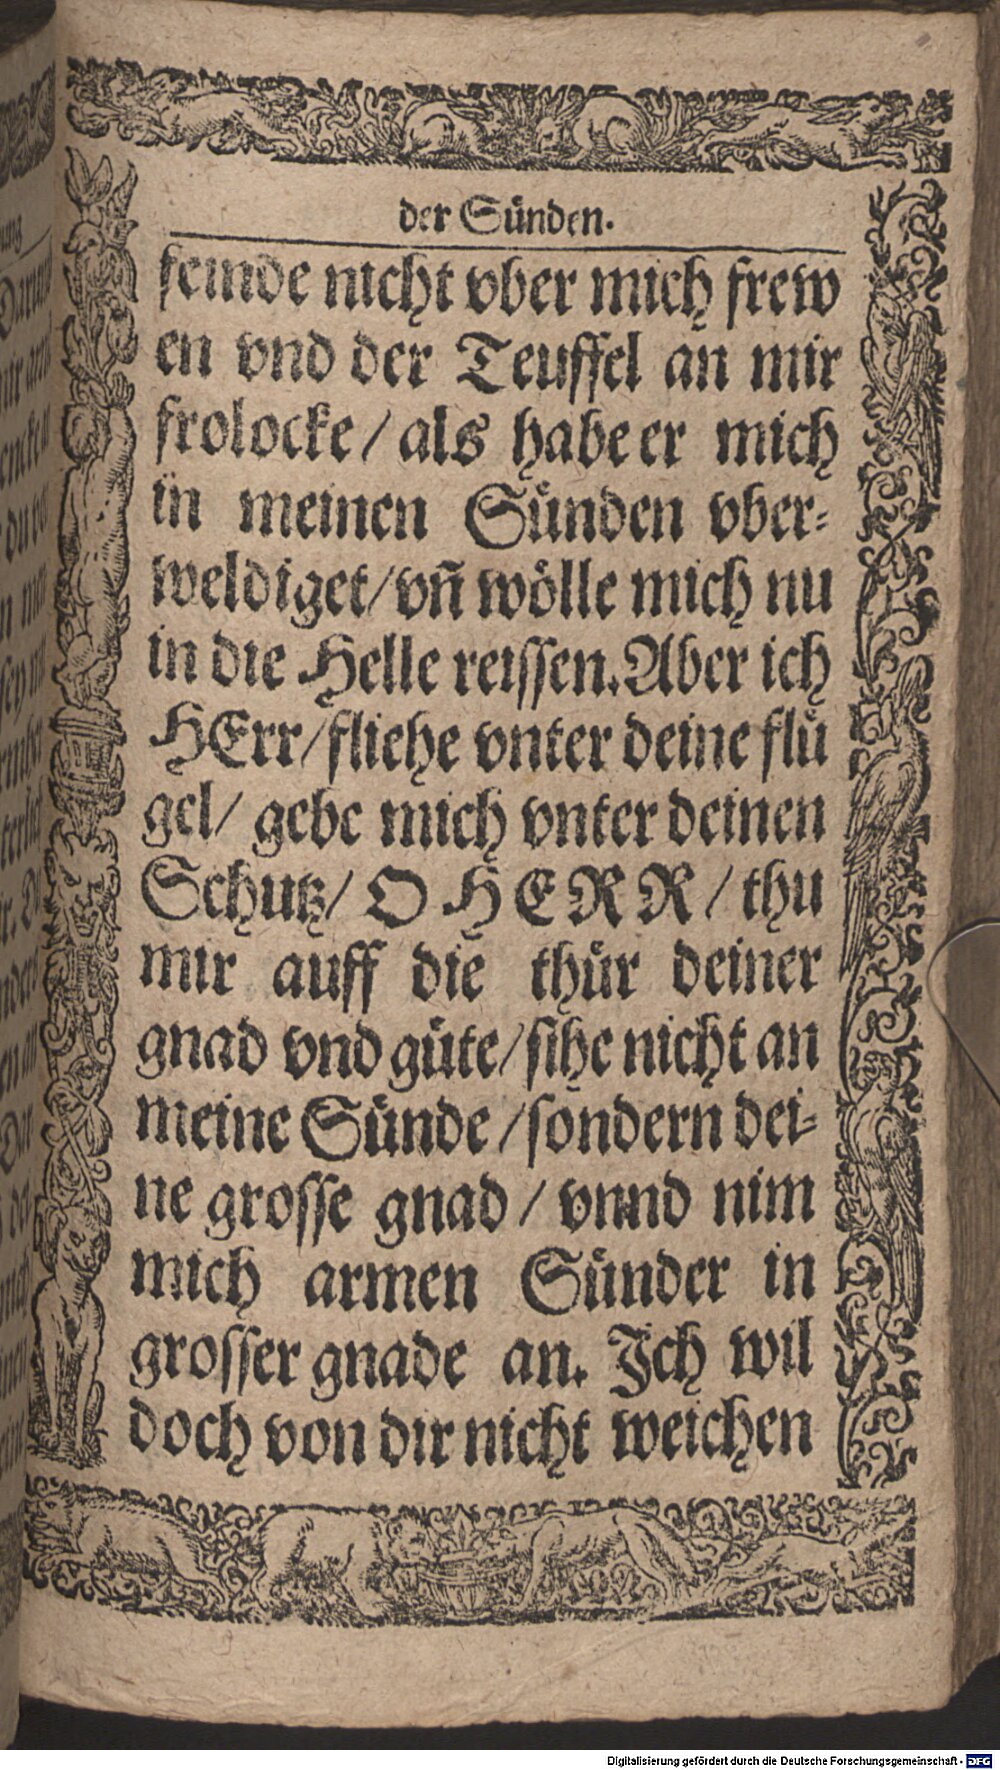 der Sünden.
feinde nicht vber mich frew
en vnd der Teuffel an mir
frolocke / als habe er mich
in meinen Sünden vber-
weldiget / vñ wölle mich nu
in die Helle reissen. Aber ich
HErr / fliehe vnter deine flü
gel / gebe mich vnter deinen
Schutz / O HERR / thu
mir auff die thür deiner
gnad vnd güte / sihe nicht an
meine Sünde / sondern dei-
ne grosse gnad / vnnd nim
mich armen Sünder in
grosser gnade an. Ich wil
doch von dir nicht weichen
Digitalisierung gefördert durch die Deutsche Forschungsgemeinschaft - DFG